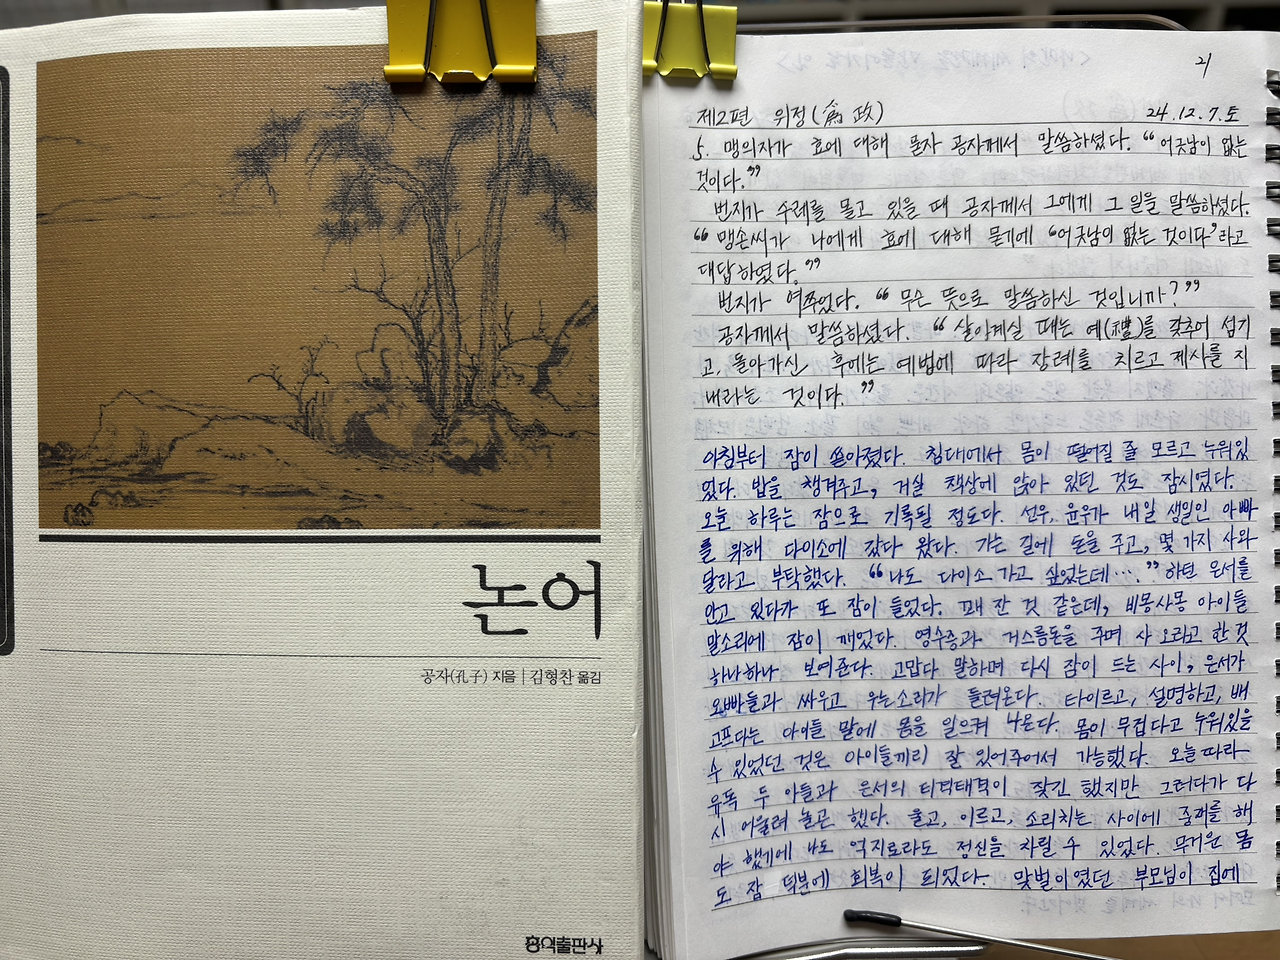 논어
공자(孔子) 지음 | 김형찬 옮김
홍익출판사
21
제2편 위정(爲政) 24.12.7.토
5. 맹의자가 효에 대해 묻자 공자께서 말씀하셨다. “어긋남이 없는
것이다.”
번지가 수레를 몰고 있을 때 공자께서 그에게 그 일을 말씀하셨다.
“맹손씨가 나에게 효에 대해 묻기에 “어긋남이 없는 것이다”라고
대답하였다.”
번지가 여쭈었다. “무슨 뜻으로 말씀하신 것입니까?”
공자께서 말씀하셨다. “살아계실 때는 예(禮)를 갖추어 섬기
고, 돌아가신 후에는 예법에 따라 장례를 치르고 제사를 지
내라는 것이다.”
아침부터 잠이 쏟아졌다. 침대에서 몸이 떨어질 줄 모르고 누워있
었다. 밥을 챙겨주고, 거실 책상에 앉아 있던 것도 잠시였다.
오늘 하루는 잠으로 기록될 정도다. 선우, 윤우가 내일 생일인 아빠
를 위해 다이소에 갔다 왔다. 가는 길에 돈을 주고, 몇 가지 사와
달라고 부탁했다. “나도 다이소 가고 싶었는데….” 하던 은서를
안고 있다가 또 잠이 들었다. 꽤 잔 것 같은데, 비몽사몽 아이들
말소리에 잠이 깨었다. 영수증과 거스름돈을 주며 사 오라고 한 것
하나하나 보여준다. 고맙다 말하며 다시 잠이 드는 사이, 은서가
오빠들과 싸우고 우는소리가 들려온다. 타이르고, 설명하고, 배
고프다는 아이들 말에 몸을 일으켜 나온다. 몸이 무겁다고 누워있을
수 있었던 것은 아이들끼리 잘 있어주어서 가능했다. 오늘따라
유독 두 아들과 은서의 티격태격이 잦긴 했지만 그러다가 다
시 어울려 놀곤 했다. 울고, 이르고, 소리치는 사이에 중재를 해
야 했기에 나도 억지로라도 정신을 차릴 수 있었다. 무거운 몸
도 잠 덕분에 회복이 되었다. 맞벌이였던 부모님이 집에